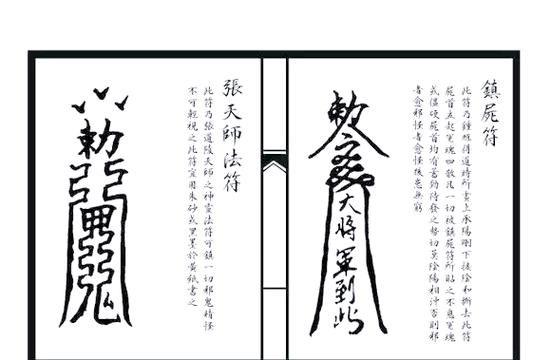 鎮屍符
此符乃鍾馗得道時所畫上承陽剛下接陰和撕去此符
屍首立起冤魂四散凡一切被鎮屍符所貼之不息冤魂
或僵硬屍首均有蓄勢待發之勢切莫陰陽相沖否則邪
者愈邪怪者愈怪後患無窮
勅
大將軍到此
張天師法符
此符乃張道陵天師之神靈法符可鎮一切邪鬼精怪
不可輕視之此符宜用朱砂或黑墨於黃紙書之
勅